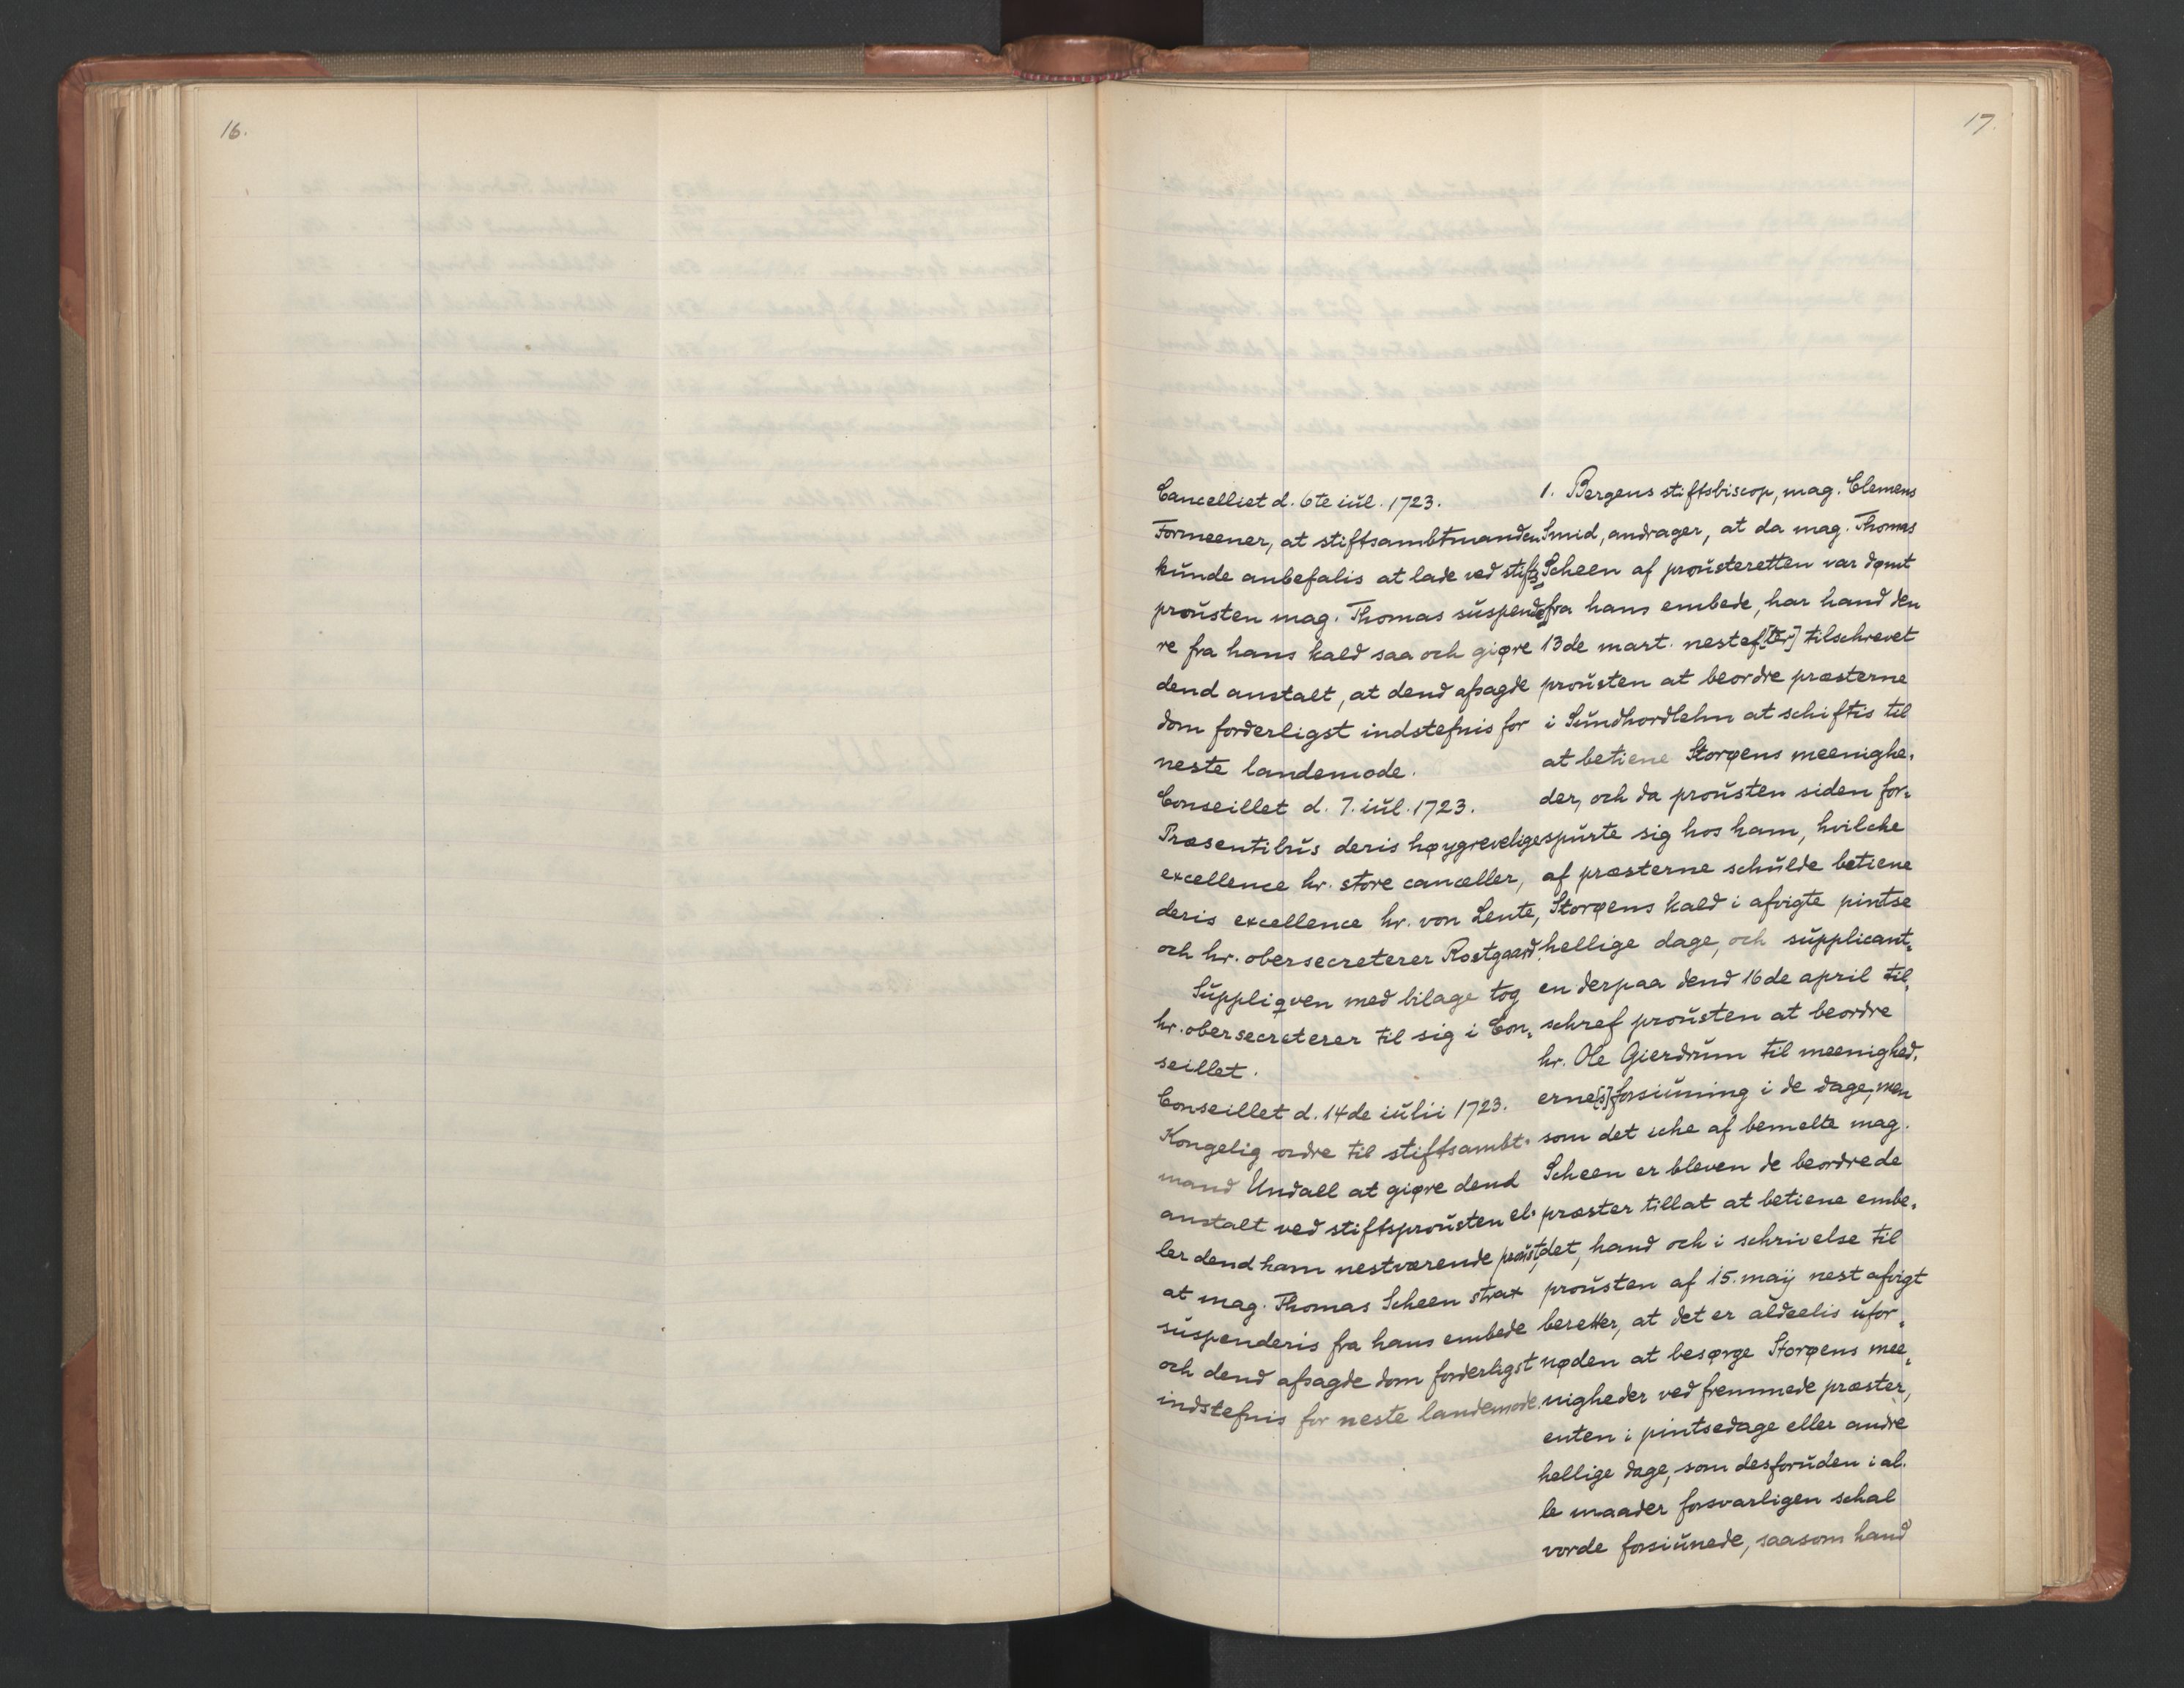 16.
17.
Cancelliet d. 6te iŭl. 1723.
Formeener, at stiftsambtmanden
kŭnde anbefalis at lade ved stifts=
proŭsten mag. Thomas sŭspende=
re fra hans kald saa och giøre
dend anstalt, at dend afsagde
dom forderligst indstefnis for
neste landemode.
Conseillet d. 7. iŭl. 1723.
Præsentibŭs deris høygrevelige
excellence hr. store canceller,
deris excellence hr. von Lente,
och hr. obersecreterer Rostgaard.
Sŭppliqven med bilage tog
hr. obersecreterer til sig i Con=
seillet.
Conseillet d. 14de iŭlii 1723.
Kongelig ordre til stiftsambt=
mand Undall at giøre dend
anstalt ved stiftsproŭsten el=
ler dend ham nestværende proŭst,
at mag. Thomas Scheen strax
sŭspenderis fra hans embede
och dend afsagde dom forderligst
indstefnis for neste landemode.
1. Bergens stiftsbiscop, mag. Clemens
Smid, andrager, at da mag. Thomas
Scheen af proŭsteretten var dømt
fra hans embede, har hand den
13de mart. nestef[ter] tilschrevet
proŭsten at beordre præsterne
i Sŭndhordlehn at schiftis til
at betiene Storøens meenighe=
der, och da proŭsten siden for=
spŭrte sig hos ham, hvilche
af præsterne schŭlde betiene
Storøens kald i afvigte pintse
hellige dage, och sŭpplicant=
en derpaa dend 16de april til=
schref proŭsten at beordre
hr. Ole Gierdrŭm til meenighed=
erne[s] forsiŭning i de dage, men
som det iche af bemelte mag.
Scheen er bleven de beordrede
præster tillat at betiene embe=
det, hand och i schrivelse til
proŭsten af 15. maÿ nest afvigt
beretter, at det er aldeelis ŭfor=
nøden at besørge Storøens mee=
nigheder ved fremmede præster,
enten i pintsedage eller andre
hellige dage, som desforŭden i al=
le maader forsvarligen schal
vorde forsiŭnede, saasom hand